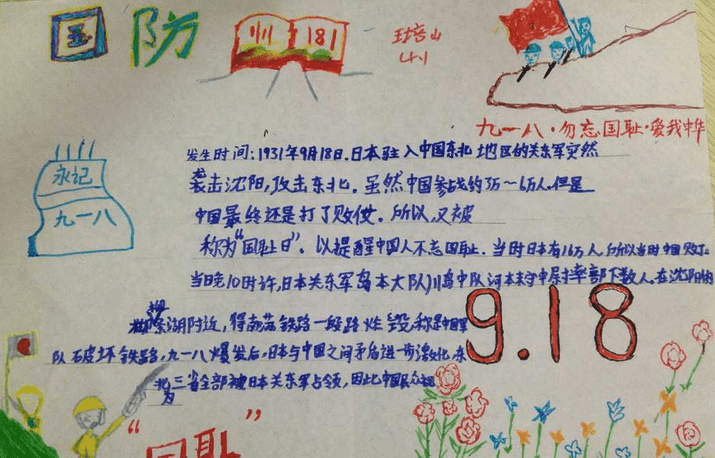 国防
九一八·勿忘国耻·爱我中华
永记
九一八
发生时间:1931年9月18日.日本驻入中国东北地区的关东军突然
袭击沈阳,攻击东北。虽然中国参战约5万~6万人.但是
中国最终还是打了败仗。所以,又被
称为“国耻日”。以提醒中国人不忘国耻.当时日本有16万人,所以当时中国败
当晚10时许,日本关东军岛本大队川岛中队河本末守中尉率部下数人.在沈阳
湖附近,得南 铁路一段路炸毁,称是中国军
队破坏铁路,九一八爆发后,日本与中国之间矛盾进一步激化,东
北三省全部被日本关东军占领,因此中国民众视
为
9.18
“国耻”